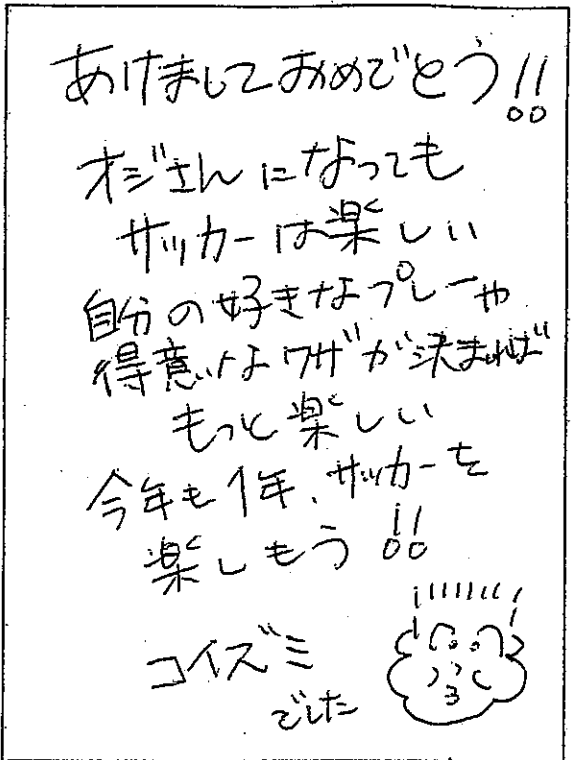 あけましておめでとう!!
オジさんになっても
サッカーは楽しい
自分の好きなプレーや
得意なワザが決まれば
もっと楽しい
今年も1年、サッカーを
楽しもう!!
コイズミ
でした